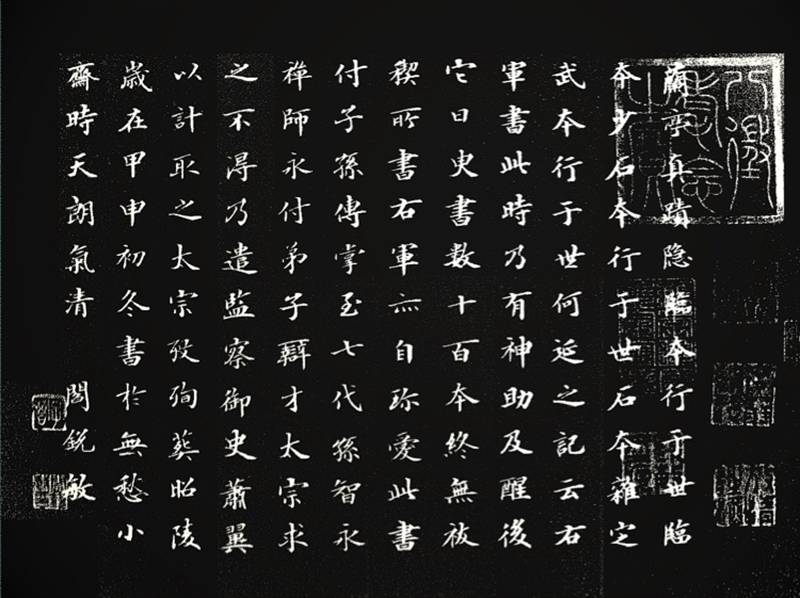 蘭亭真蹟隐臨夲行于世臨
夲少石夲行于世石夲雜定
武夲行于世何延之記云右
軍書此時乃有神助及醒後
它日更書数十百夲終無祓
禊所書右軍亦自珎愛此書
付子孫傳掌至七代孫智永
禅師永付弟子辯才太宗求
之不得乃遣監察御史蕭翼
以計取之太宗殁殉葬昭陵
歲在甲申初冬書於無愁小
齋時天朗氣清 閻銳敏